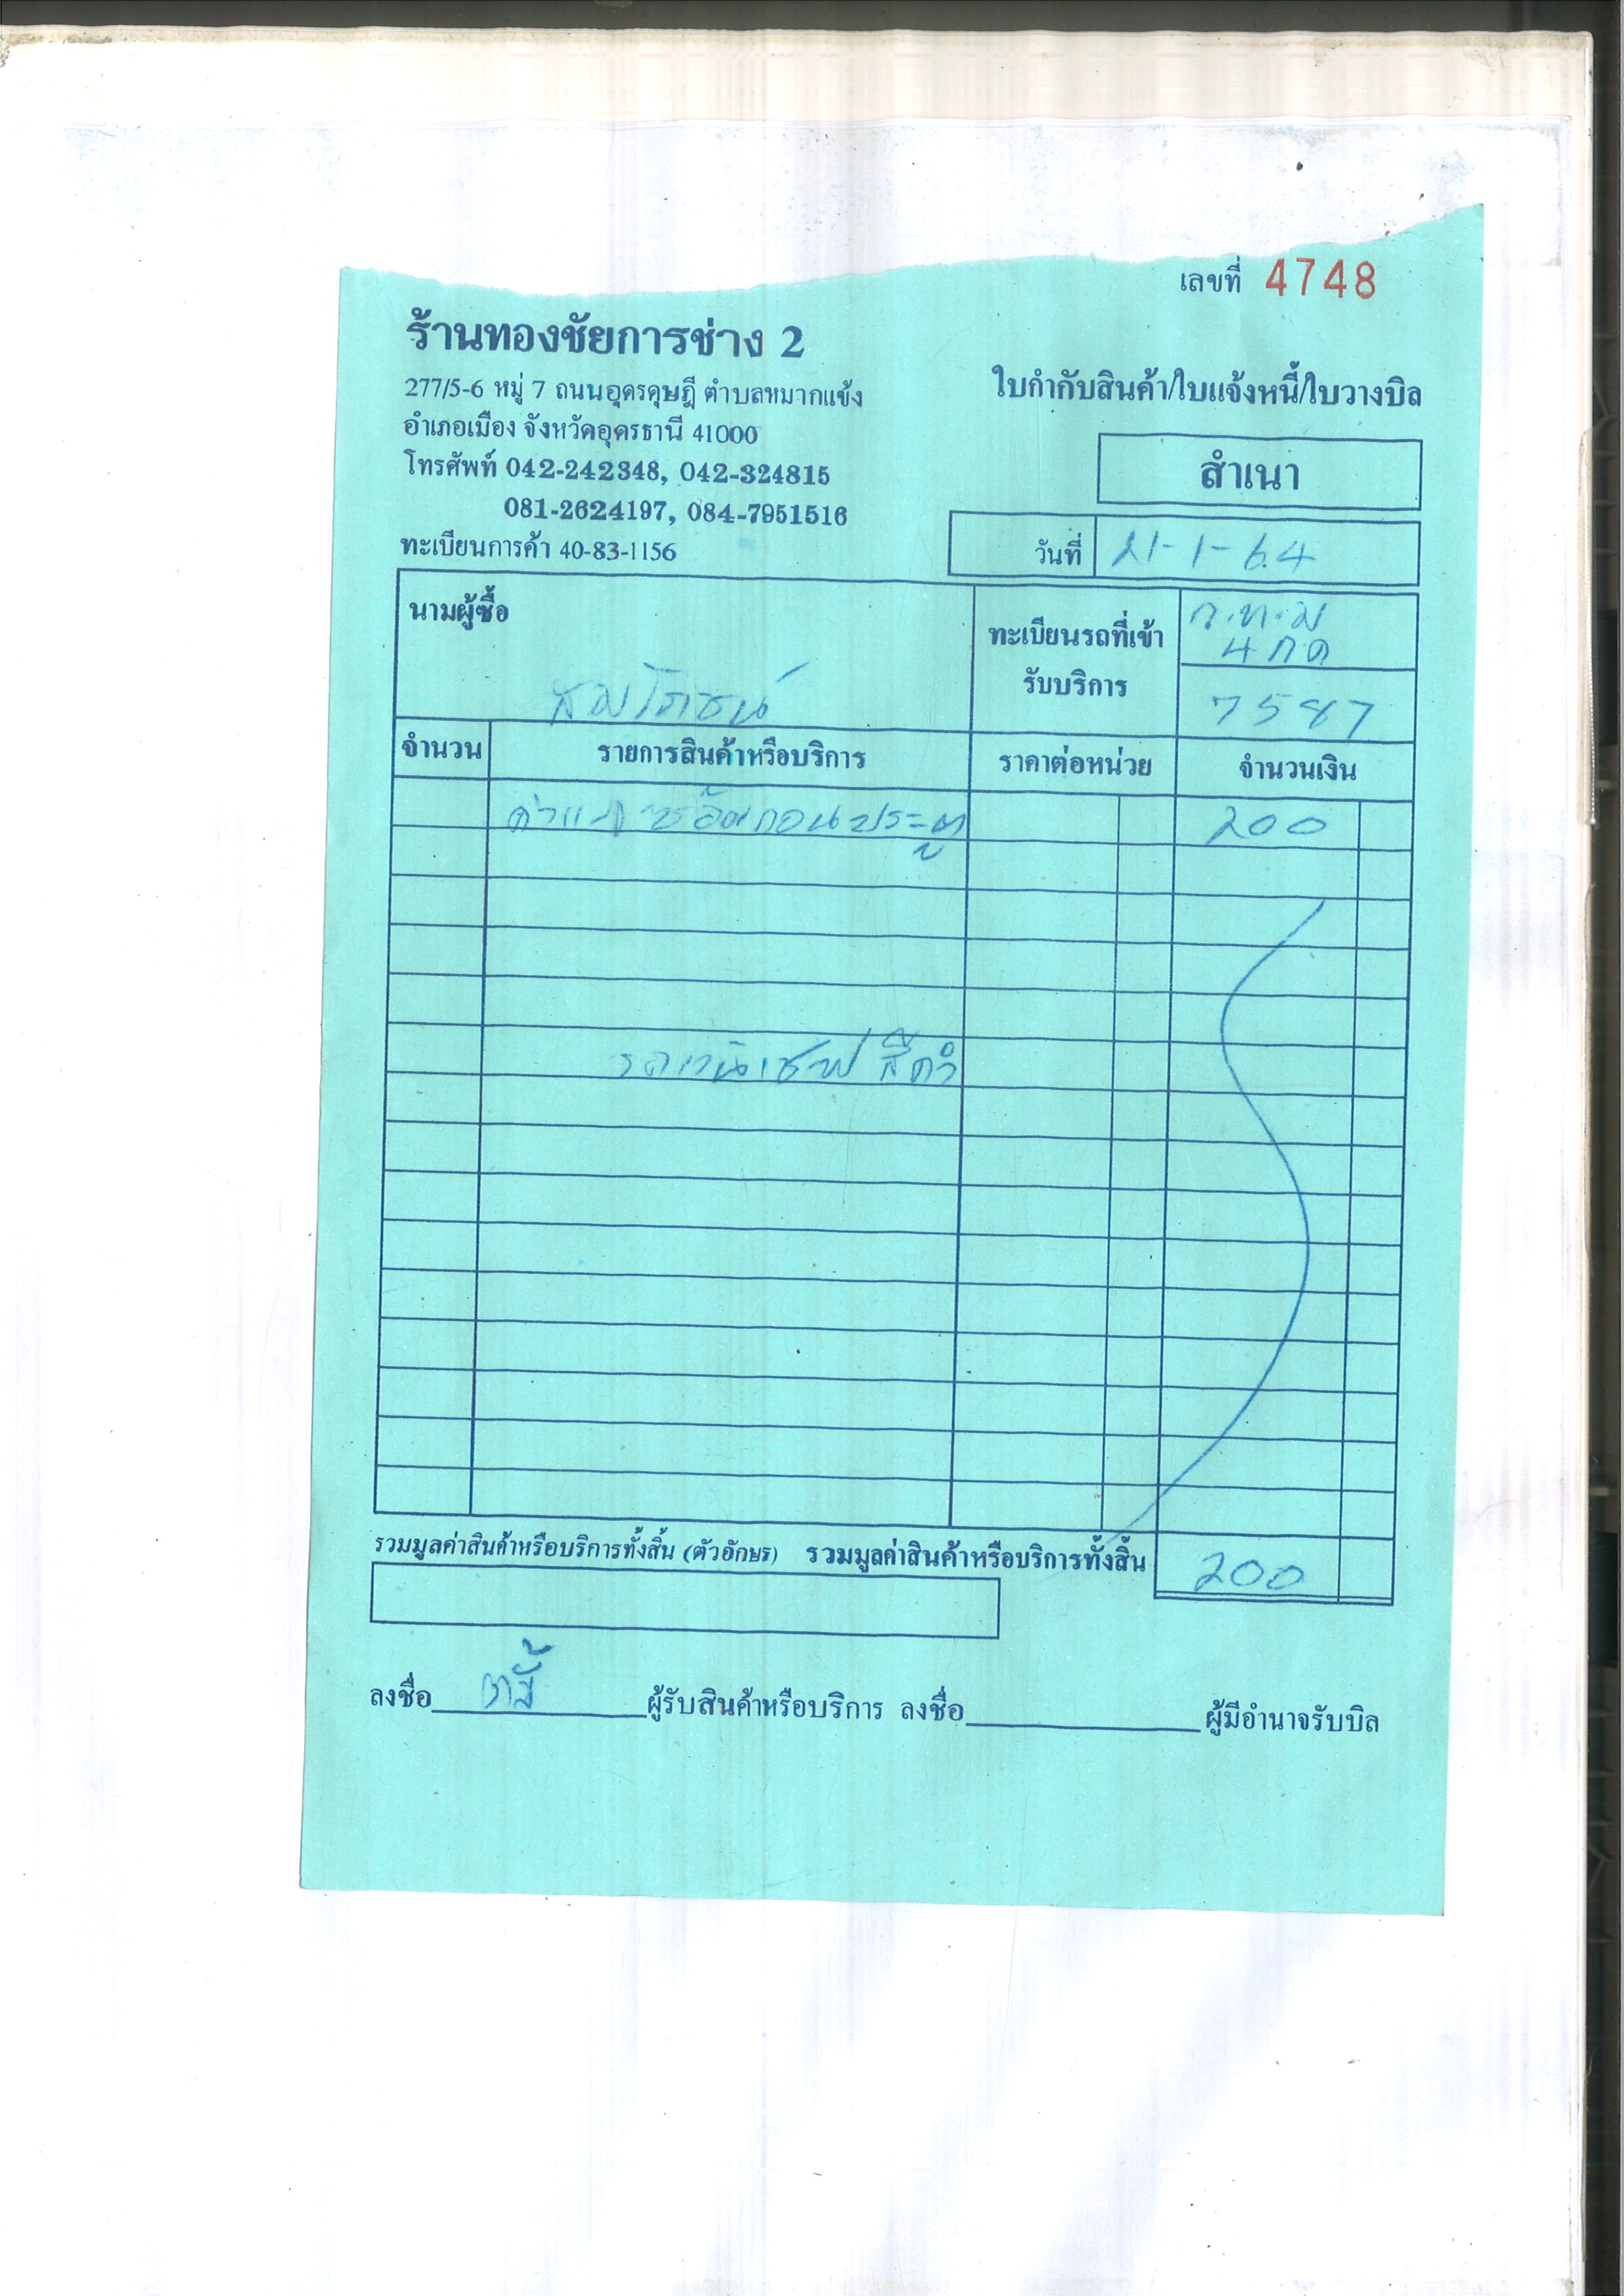 เลขที่ 4748
ร้านทองชัยการช่าง 2
277/5-6 หมู่ 7 ถนนอุดรดุษฎี ตำบลหมากแข้ง
อำเภอเมือง จังหวัดอุดรธานี 41000
โทรศัพท์ 042-242348, 042-324815
081-2624197, 084-7951516
ทะเบียนการค้า 40-83-1156
ใบกำกับสินค้า/ใบแจ้งหนี้/ใบวางบิล
สำเนา
วันที่ 21-1-64
นามผู้ซื้อ
สมโภชน์
ทะเบียนรถที่เข้า
รับบริการ
ก.ท.ม
4 กด
7587
จำนวน รายการสินค้าหรือบริการ ราคาต่อหน่วย จำนวนเงิน
ค่าแรงซ่อมกอนประตู 200
สีดำ
รวมมูลค่าสินค้าหรือบริการทั้งสิ้น (ตัวอักษร) รวมมูลค่าสินค้าหรือบริการทั้งสิ้น 200
ลงชื่อ ผู้รับสินค้าหรือบริการ ลงชื่อ ผู้มีอำนาจรับบิล